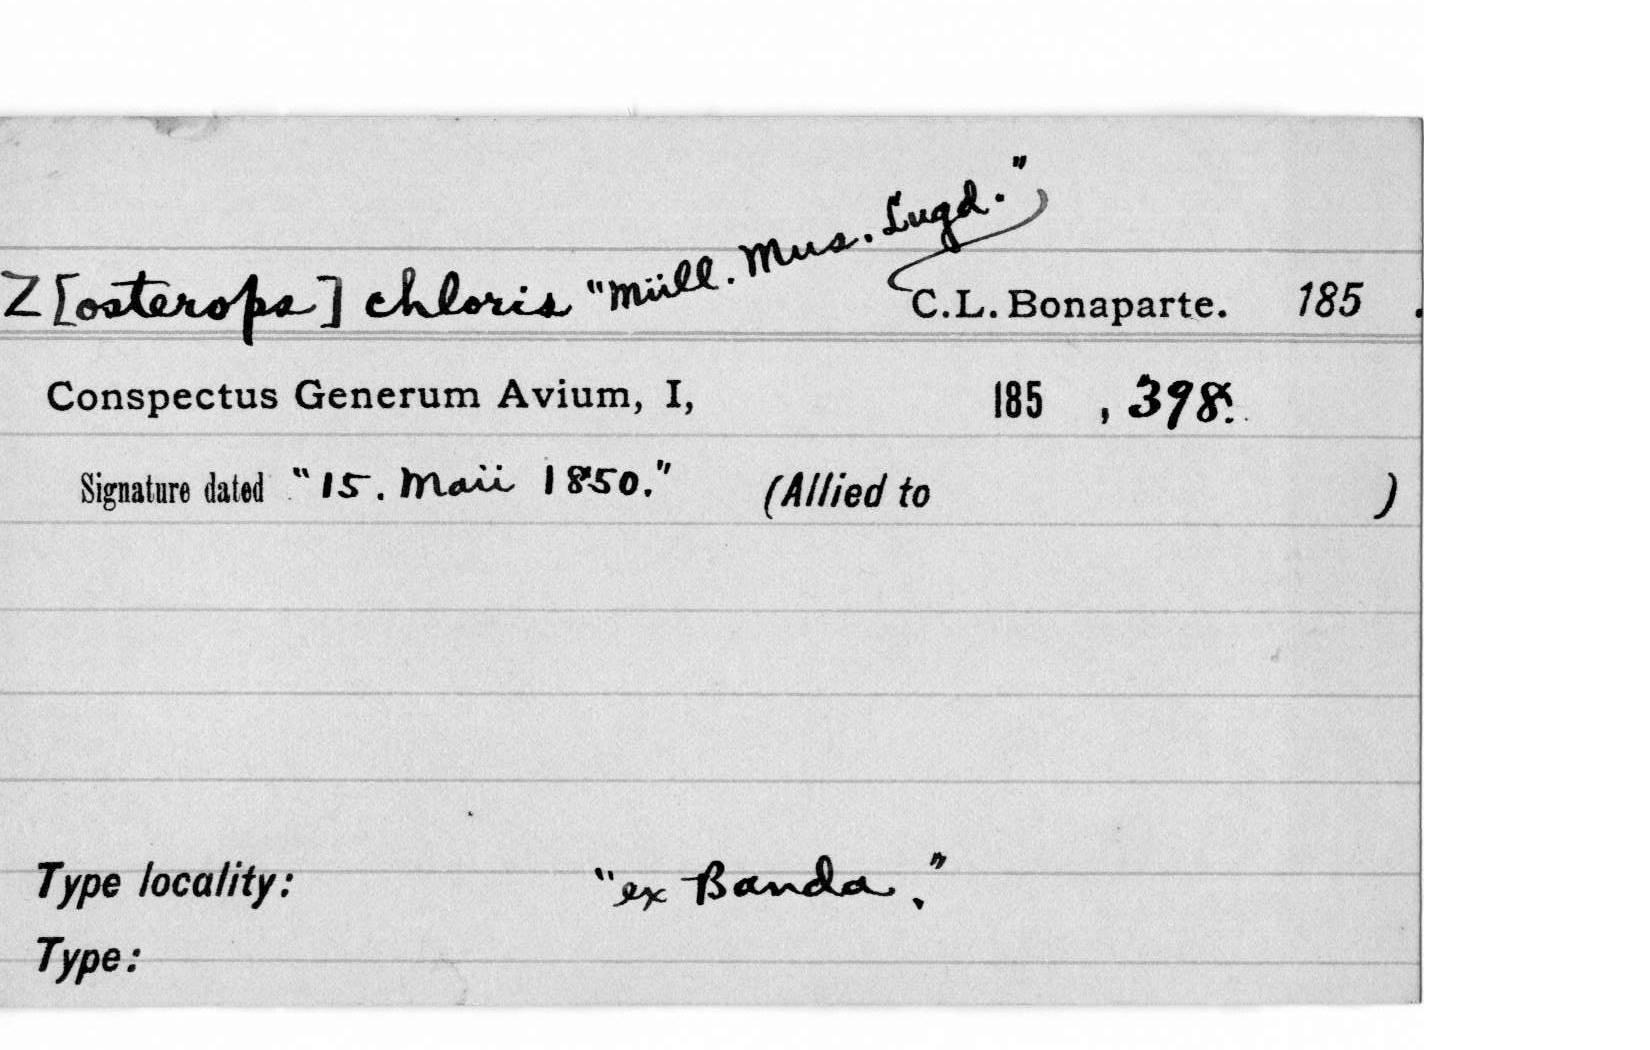 Z[osterops] chloris "Müll. Mus. Lugd." C.L. Bonaparte. 185 .
Conspectus Generum Avium, I, 185 , 398.
Signature dated "15. Maii 1850." (Allied to )
Type locality: "ex Banda."
Type: